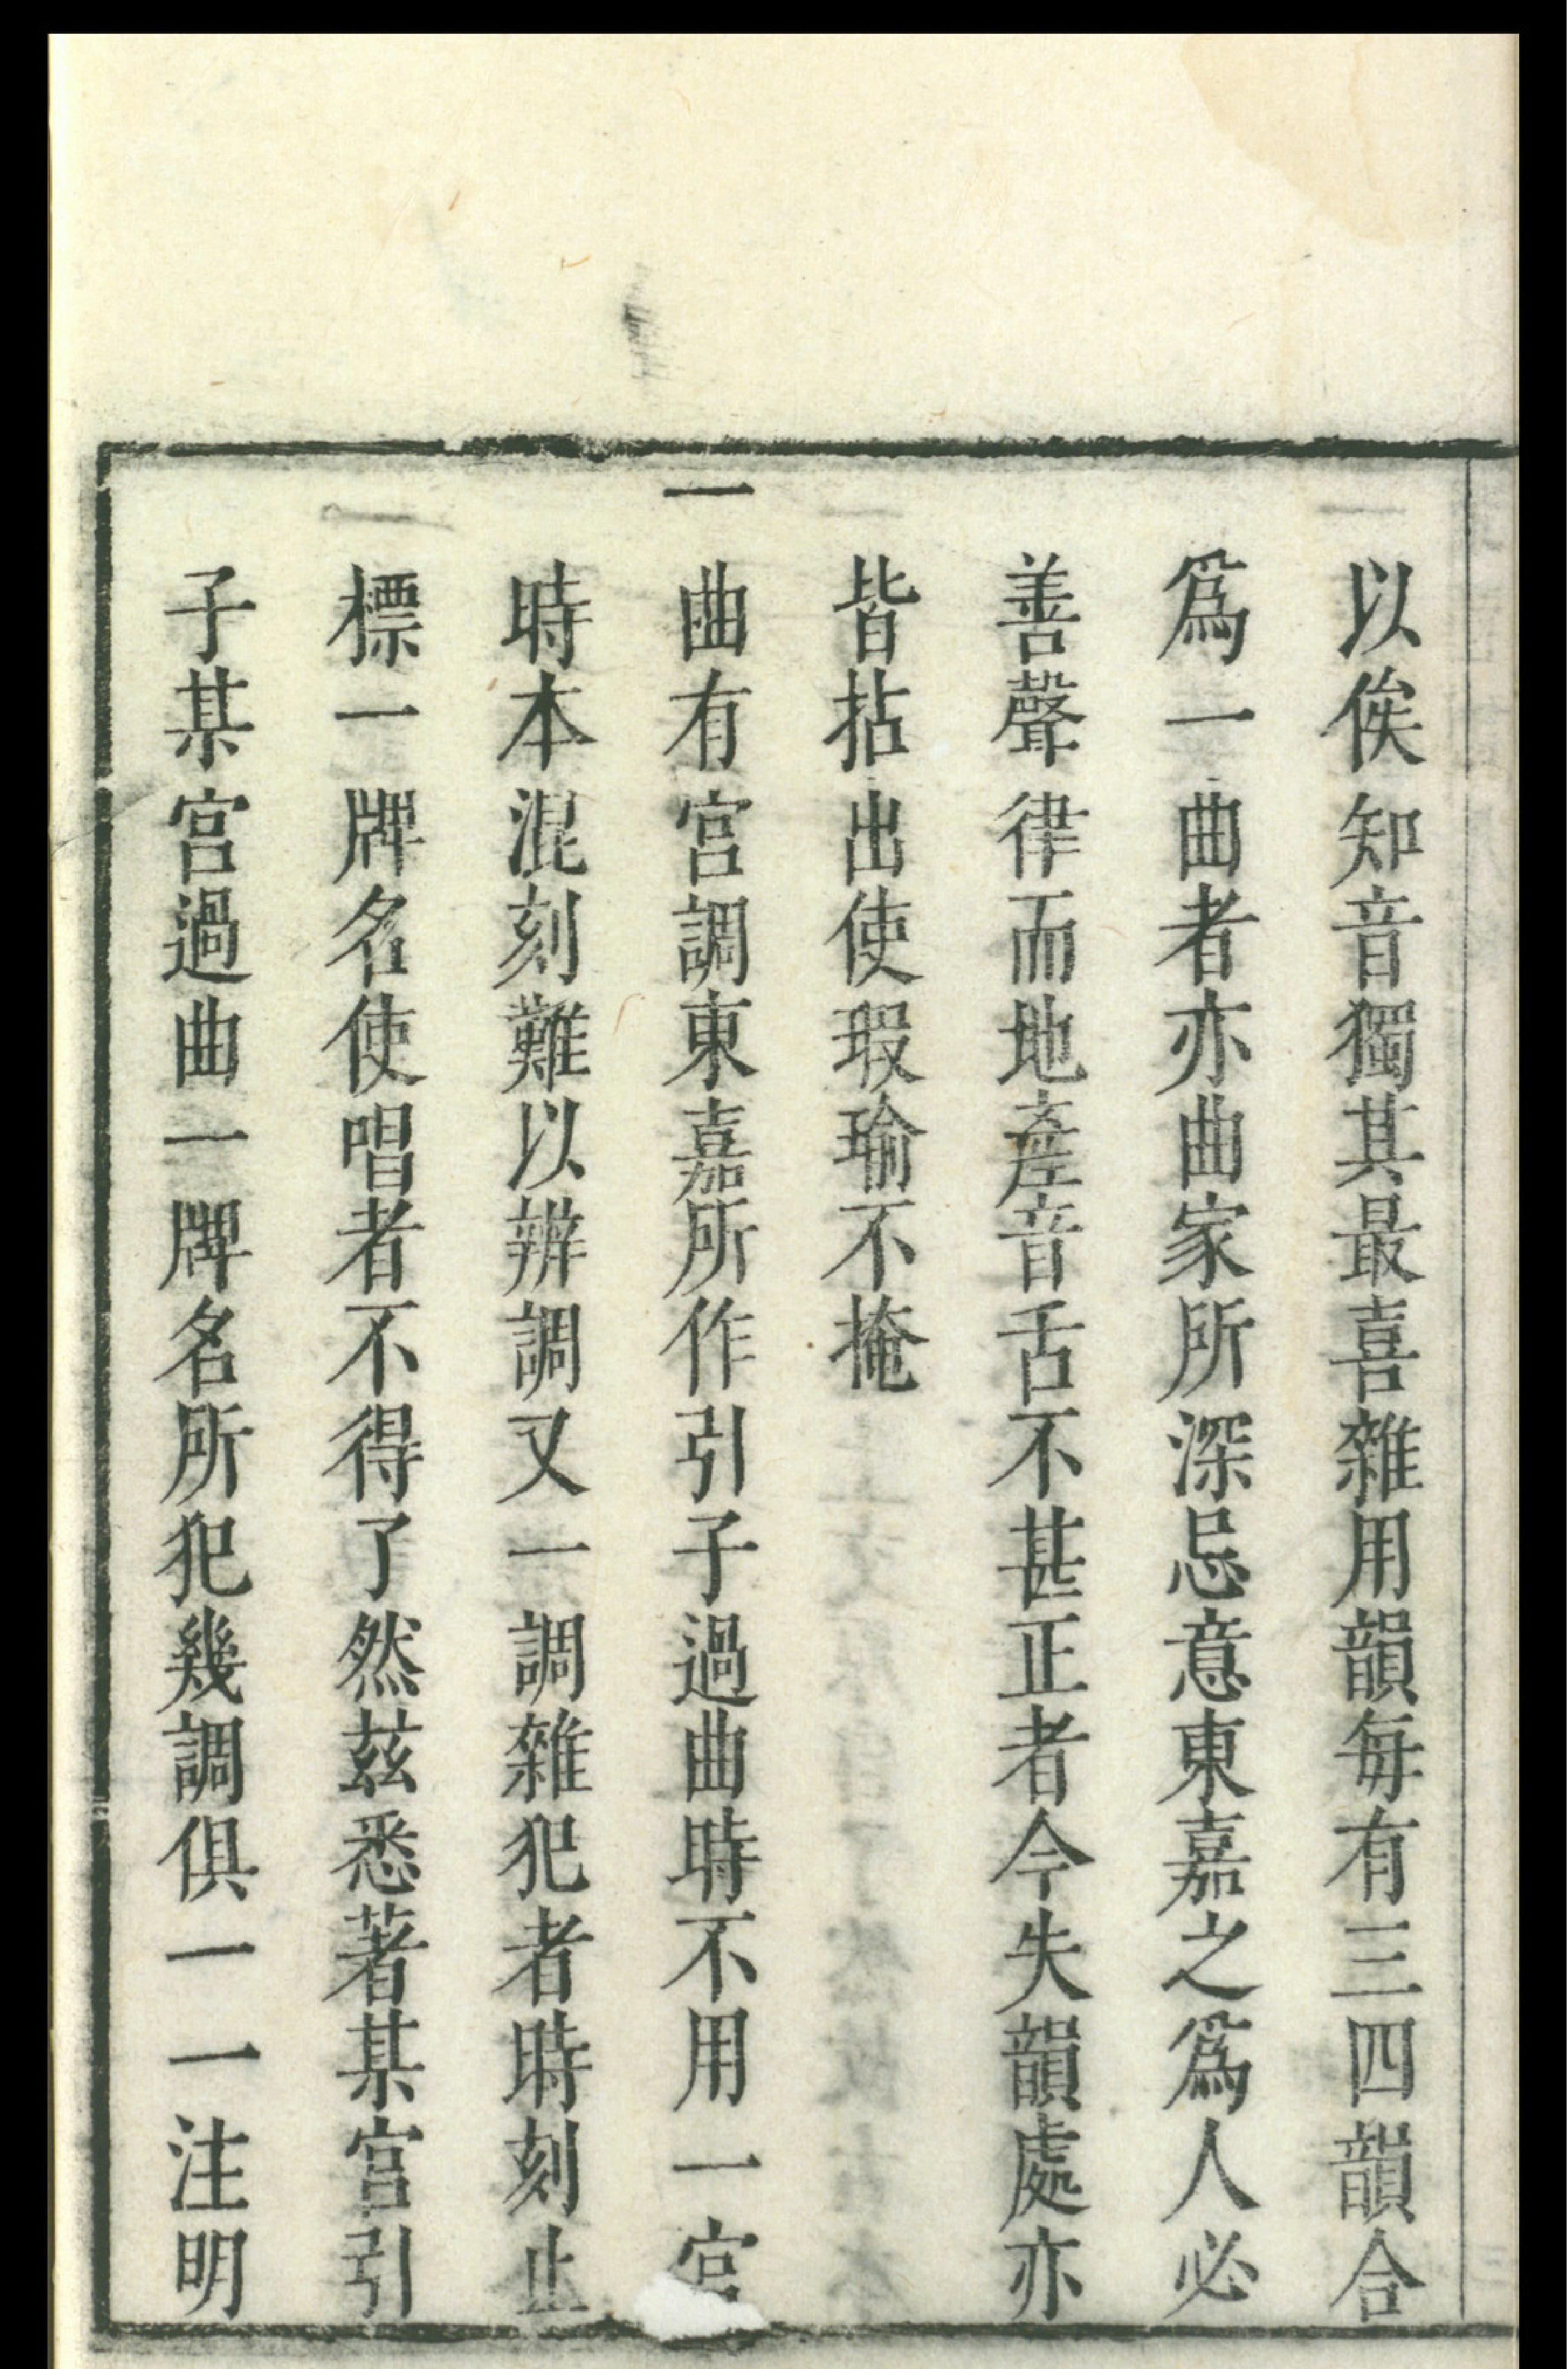 以俟知音獨其最喜雜用韻每有三四韻合
爲一曲者亦曲家所深忌意東嘉之爲人必
善聲律而地產音舌不甚正者今失韻處亦
皆拈出使瑕瑜不掩
一曲有宮調東嘉所作引子過曲時不用一宮
時本混刻難以辨調又一調雜犯者時刻止
標一牌名使唱者不得了然兹悉著某宮引
子某宮過曲一牌名所犯幾調俱一一注明